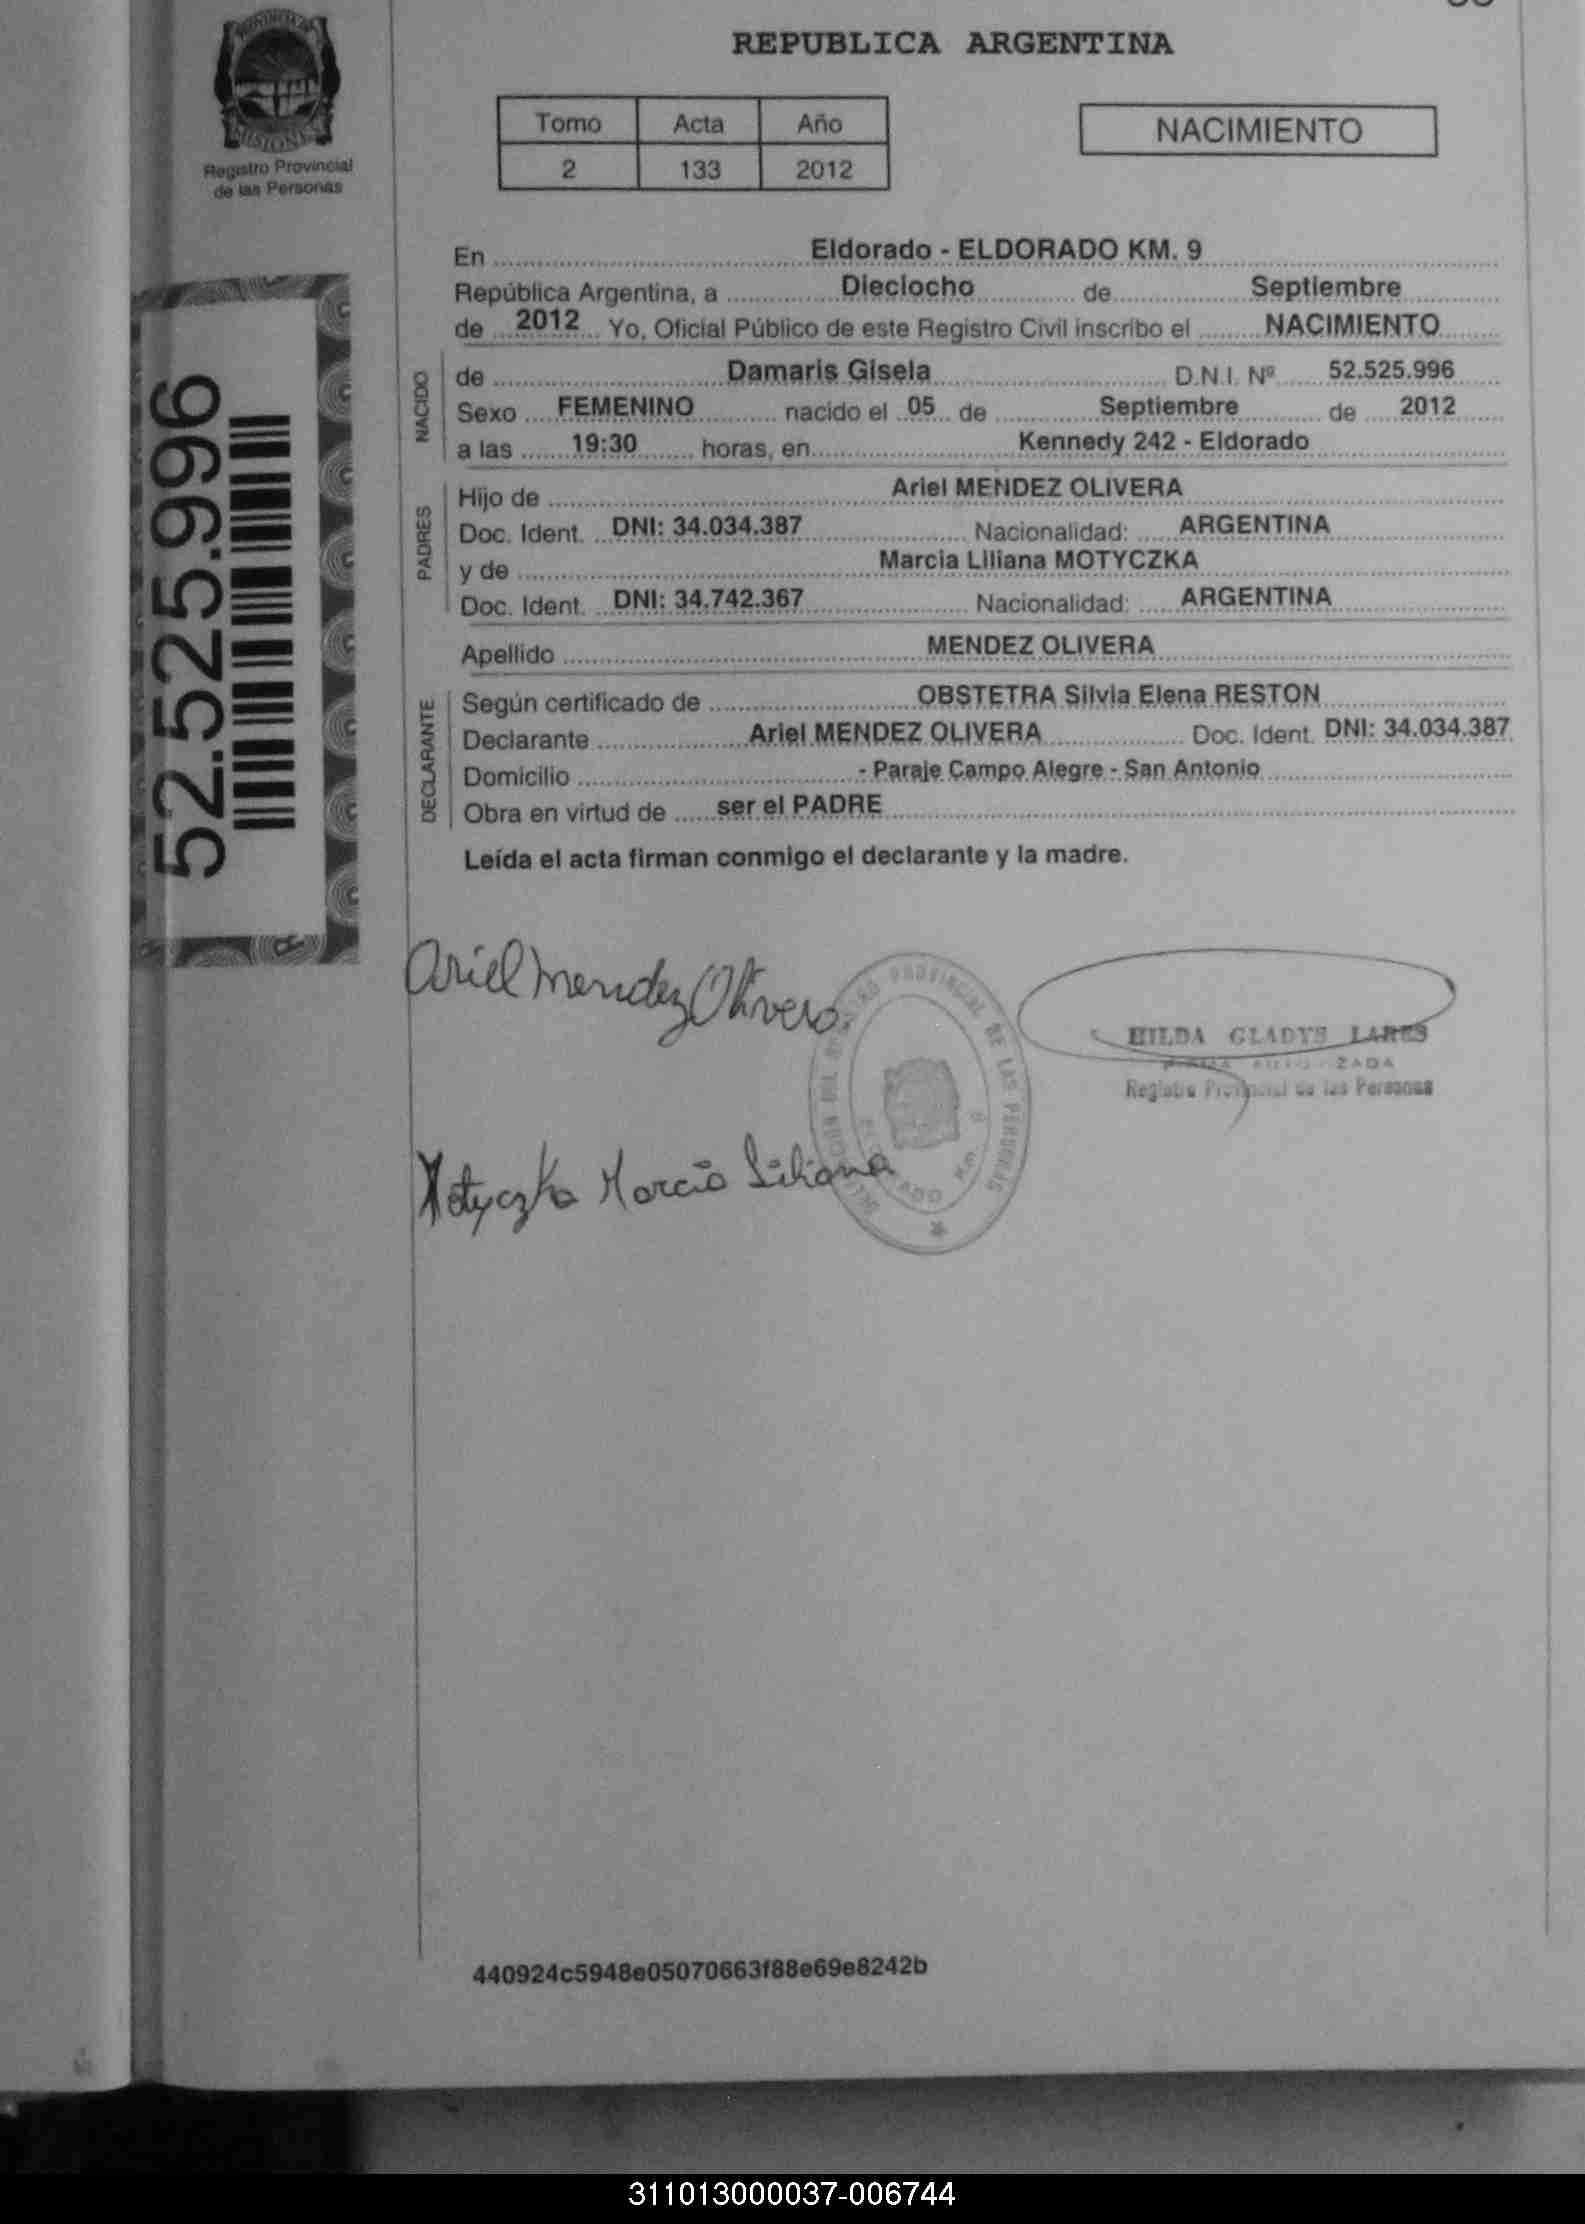 REPUBLICA ARGENTINA
PROVINCIA DE
MISIONES
Registro Provincial
de las Personas
Tomo Acta Año
2 133 2012
NACIMIENTO
52.525.996
En Eldorado - ELDORADO KM. 9
República Argentina, a Dieciocho de Septiembre
de 2012 Yo, Oficial Público de este Registro Civil inscribo el NACIMIENTO
NACIDO
de Damaris Gisela D.N.I. Nº 52.525.996
Sexo FEMENINO nacido el 05 de Septiembre de 2012
a las 19:30 horas, en Kennedy 242 - Eldorado
PADRES
Hijo de Ariel MENDEZ OLIVERA
Doc. Ident. DNI: 34.034.387 Nacionalidad: ARGENTINA
y de Marcia Liliana MOTYCZKA
Doc. Ident. DNI: 34.742.367 Nacionalidad: ARGENTINA
Apellido MENDEZ OLIVERA
DECLARANTE
Según certificado de OBSTETRA Silvia Elena RESTON
Declarante Ariel MENDEZ OLIVERA Doc. Ident. DNI: 34.034.387
Domicilio - Paraje Campo Alegre - San Antonio
Obra en virtud de ser el PADRE
Leída el acta firman conmigo el declarante y la madre.
Ariel Mendez Olivera
PROVINCIAL DE LAS PERSONAS
HILDA GLADYS LARES
Registro Provincial de las Personas
Motyczka Marcia Liliana
440924c5948e05070663f88e69e8242b
311013000037-006744